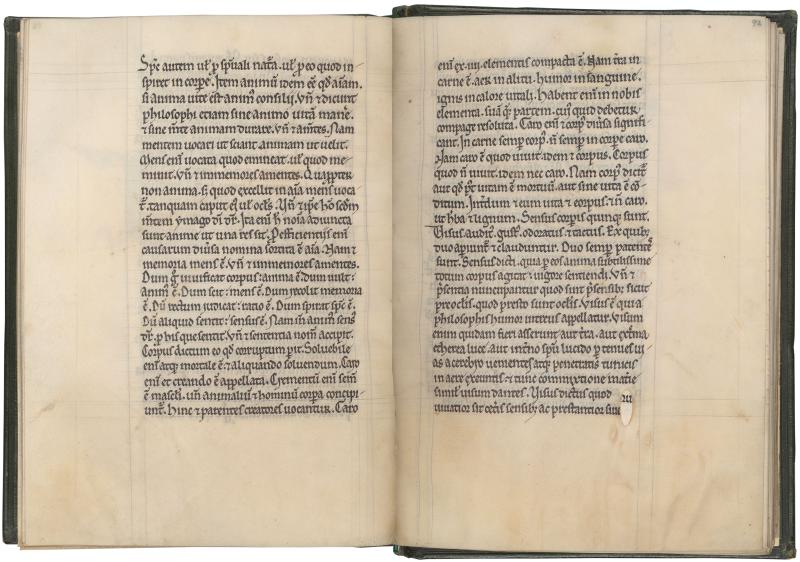 Spc̄ autem ul̓ ꝑ spūali nat̄a. ul̓ ꝑ eo quod in
spiret in corꝑe. Item animū idem ee͂ qd̓ aīam.
si anima uite ēst animꝰ consilij. Vn̄ ⁊ dicunt
philosophi etiam sine animo uitā mane͂.
⁊ sine m̄te animam durare. Vn̄ ⁊ am̄tes. Nam
mentem uocari ut sciat͛ animam ut uelit.
Mens em̄ uocata quod emineat. ul̓ quod me
minit. Vn̄ ⁊ inmemores amentes. Quaꝓpter
non anima. s; quod excellit in aīa mens uoca
t͛. tanquam caput eꝰ ul̓ oc̄ls. Vn̄ ⁊ ip̄e hō scd̄m
m̄tem ymago dī dr̄. Ita em̄ h̄ noīa adiuncta
sunt anime ut una res sit. Ꝓ efficientijs em̄
causarum diūsa nomina sortita ē aīa. Nam ⁊
memoria mens ē. Vn̄ ⁊ inmemores amentes.
Dum g̊ uiuificat corpus: anima ē. dum uult:
animꝰ ē. Dum scit: mens ē. Dum recolit memoria
ē. Dū rectum iudicat: ratio ē. Dum spirat sp̄c ē.
Dū aliquid sentit: sensus ē. Nam īn animꝰ sensꝰ
dr̄. ꝑ his que sentit. Vn̄ ⁊ sententia nom̄ accipit.
Corpus dictum eo qd̓ corruptum ꝑit. Solubile
em̄ atqꝫ mortale ē. ⁊ aliquando soluendum. Caro
em̄ et creando ē appellata. Crementū em̄ sem̄
ē masc̄li. un̄ animaliū ⁊ hominū corꝑa concipi
unt͛. Hinc ⁊ parentes creatores uocantur. Caro
92
em̄ ex .iiii. elementis compacta ē. Nam t͛ra in
carne ē. aer in alitu. humor in sanguine.
ignis in calore uitali. Habent em̄ in nobis
elementa. suā qͥꝫ partem. cuiꝰ quid debetur
compage resoluta. Caro em̄ ⁊ corpꝰ diūsa signifi
cant. In carne semꝑ corpꝰ. n̄ semꝑ in corꝑe caro.
Nam caro ē quod uiuit. idem ⁊ corpus. Corpus
quod n̄ uiuit. idem nec caro. Nam corpꝰ dicit͛
aut qd̓ pꝰt uitam ē mortuū. aut sine uita ē cō
ditum. Int͛dum ⁊ cum uita ⁊ corpus: ⁊ n̄ caro.
ut h̓ba ⁊ lignum. Sensus corpis quinqꝫ sunt.
Visus. auditꝰ. gustꝰ. odoratus. ⁊ tactus. Ex quibꝫ
duo aꝑiunt͛ ⁊ clauduntur. Duo semꝑ patentes
sunt. Sensus dicti. quia ꝑ eos anima subtilissime
totum corpus agitat͛ uigore sentiendi. Vn̄ ⁊
p̄sentia nuncupantur quod sunt p̄ sensibꝫ. sicut
pre oclīs. quod presto sunt oclīs. Visus ē qui a
philosophis humor uitreus appellatur. Visum
enim quidam fieri asserunt aut t͛ra. aut ext͛ma
etherea luce. aut int͛no spū lucido ꝑ tenues ui
as a cerebro uenientes atqꝫ penetratis tunicis
in aere exeuntis. ⁊ tunc commixtione mat͛ie
simil̓ uisum dantes. Visus dictus quod
uiuatior sit cet͛is sensibꝫ ac prestantior siue